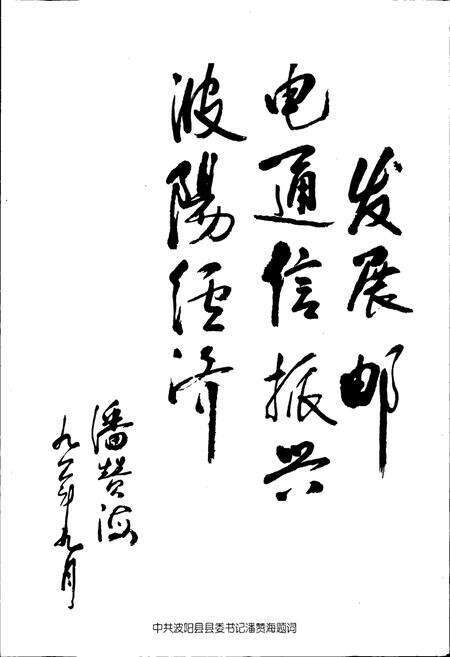 发展邮
电通信振兴
波陽经济
潘赞海
九二年九月
中共波阳县县委书记潘赞海题词